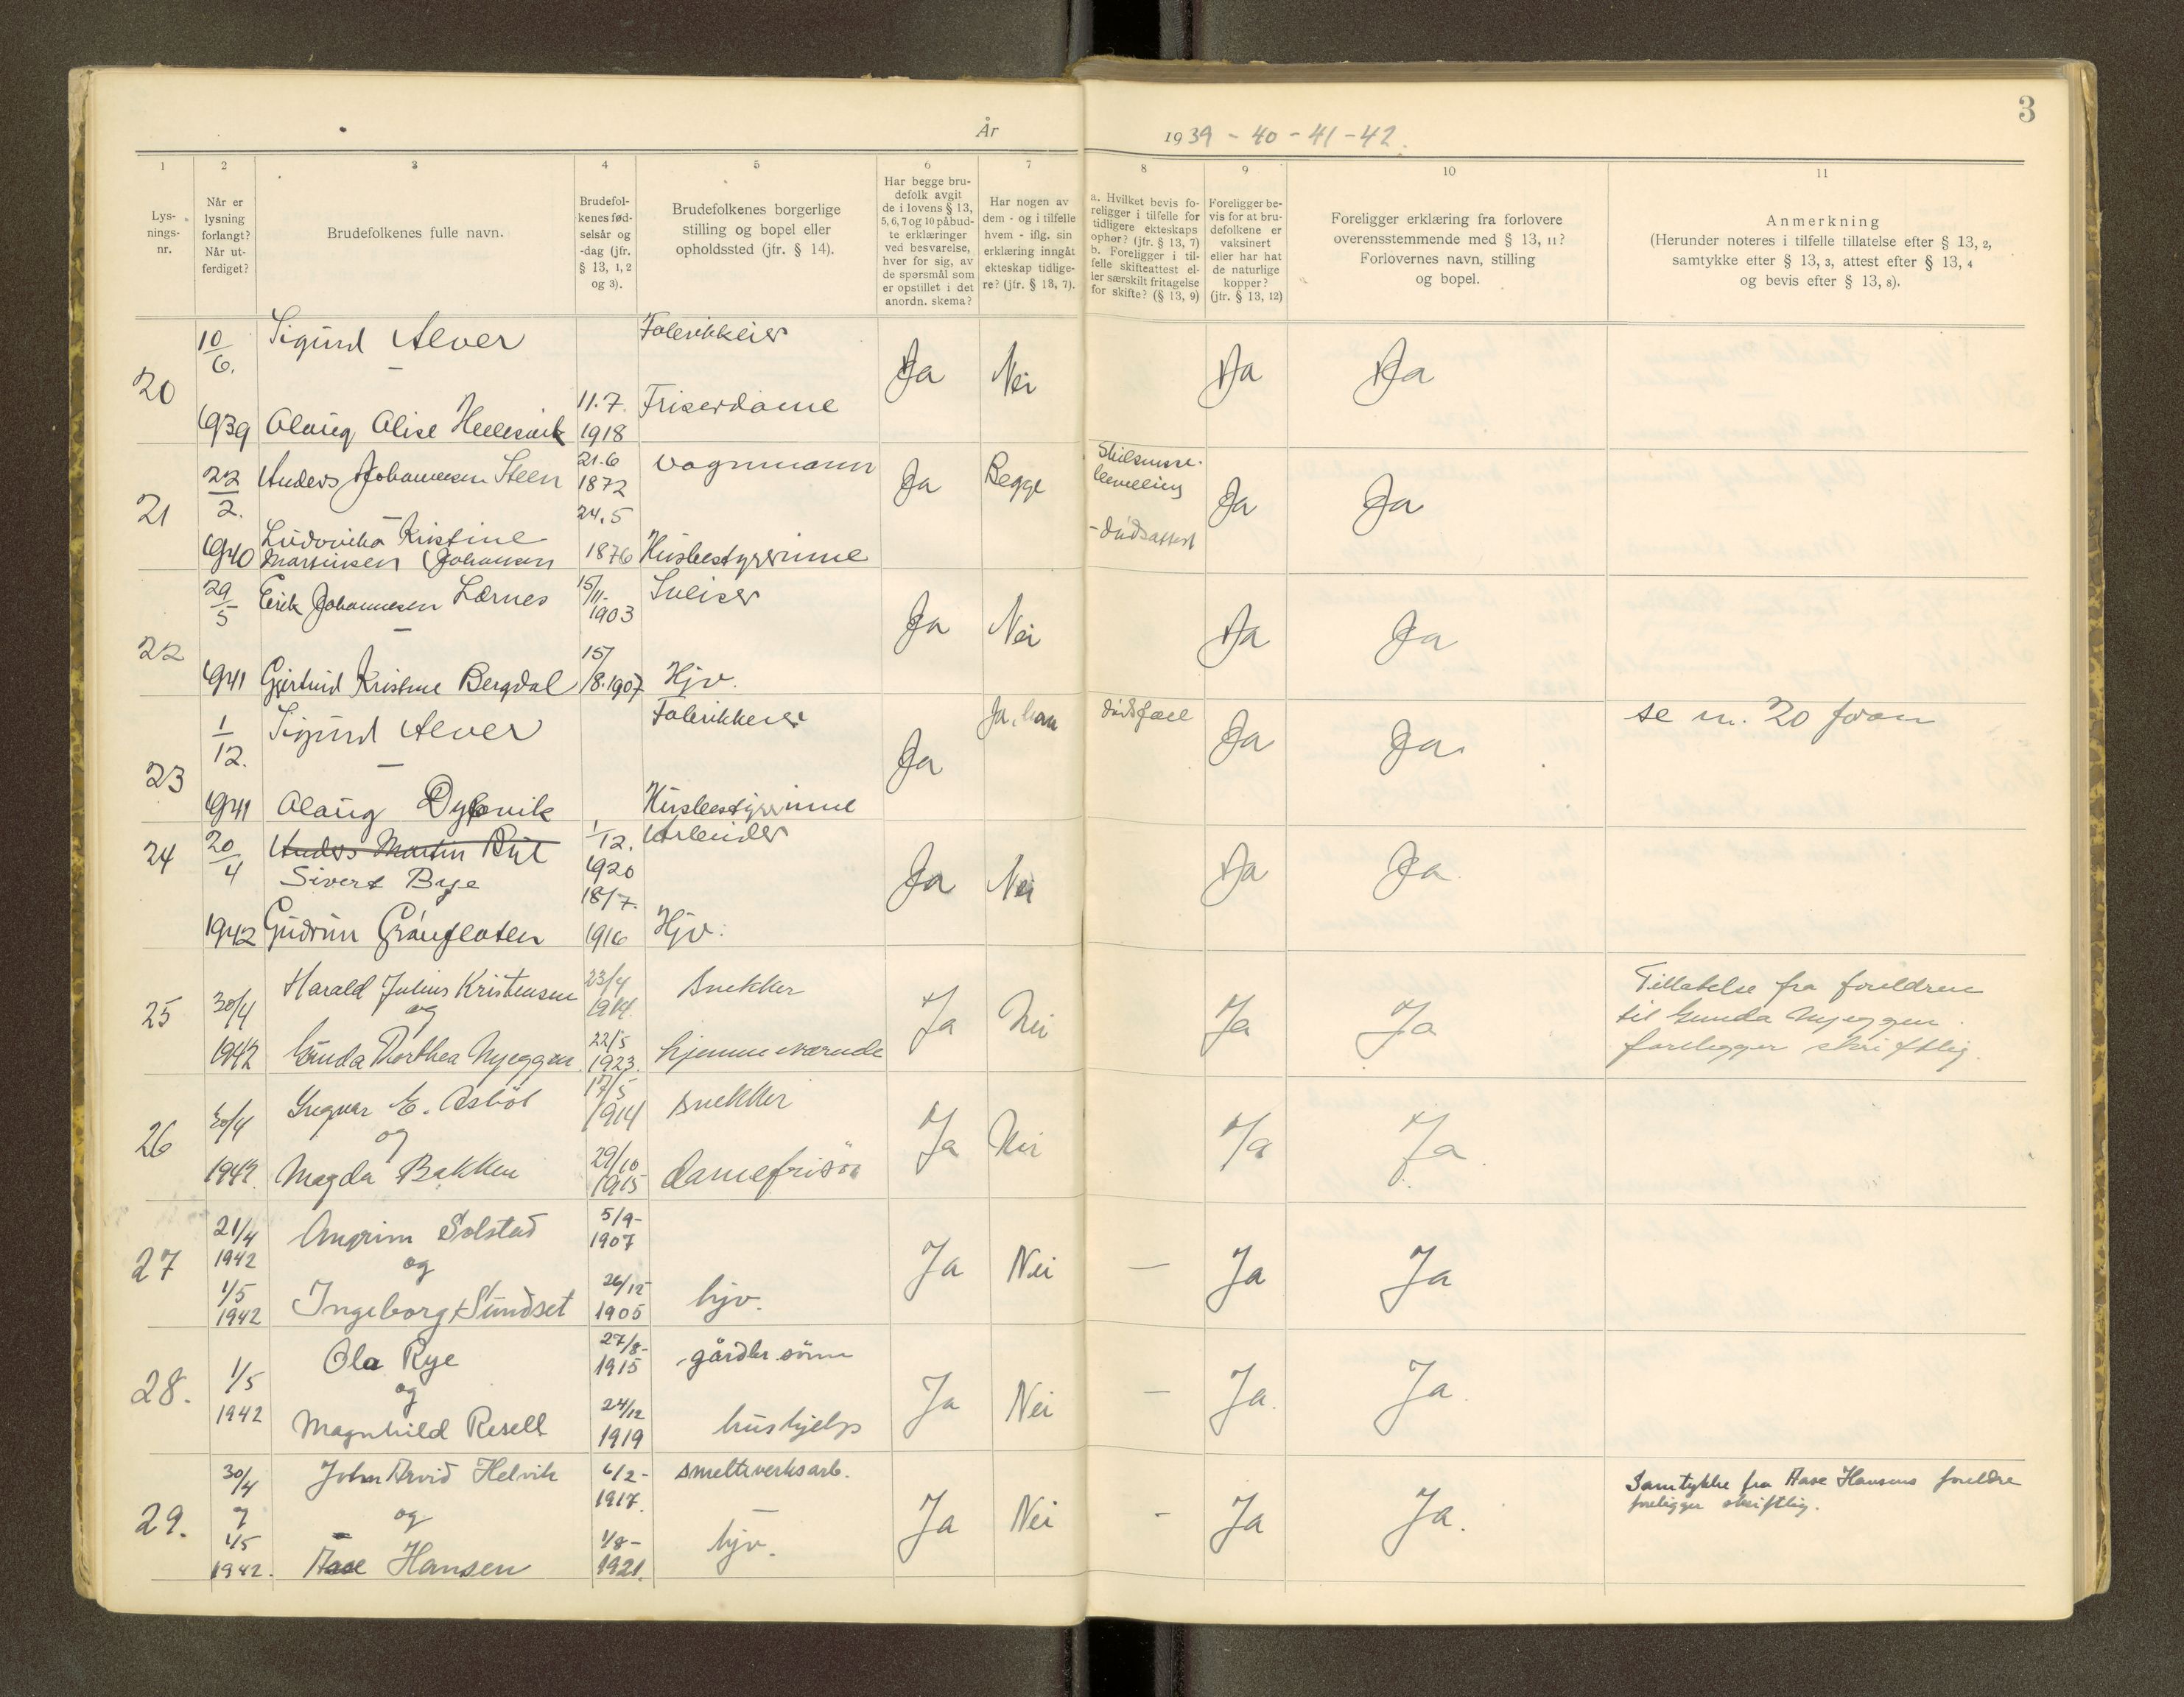 3
År
1939 - 40 - 41 - 42.
1 2 3 4 5 6 7 8 9 10 11
Lys-
nings-
nr.
Når er
lysning
forlangt?
Når ut-
ferdiget?
Brudefolkenes fulle navn.
Brudefol-
kenes fød-
selsår og
-dag (jfr.
§ 13, 1, 2
og 3).
Brudefolkenes borgerlige
stilling og bopel eller
opholdssted (jfr. § 14).
Har begge bru-
defolk avgit
de i lovens § 13,
5, 6, 7 og 10 påbud-
te erklæringer
ved besvarelse,
hver for sig, av
de spørsmål som
er opstillet i det
anordn. skema?
Har nogen av
dem - og i tilfelle
hvem - iflg. sin
erklæring inngåt
ekteskap tidlige-
re? (jfr. § 13, 7).
a. Hvilket bevis fo-
religger i tilfelle for
tidligere ekteskaps
ophør? (jfr. § 13, 7)
b. Foreligger i til-
felle skifteattest el-
ler særskilt fritagelse
for skifte? (§ 13, 9)
Foreligger be-
vis for at bru-
defolkene er
vaksinert
eller har hat
de naturlige
kopper?
(jfr. § 13, 12)
Foreligger erklæring fra forlovere
overensstemmende med § 13, 11?
Forlovernes navn, stilling
og bopel.
Anmerkning
(Herunder noteres i tilfelle tillatelse efter § 13, 2,
samtykke efter § 13, 3, attest efter § 13, 4
og bevis efter § 13, 8).
20
10/6.
1939
Sigurd Alver
Fabrikkeier
Alaug Alise
11.7.
1918
Friserdame
Ja Nei Ja Ja
21
22/2.
1940
Anders Johannesen Steen
21.6
1872
vognmann
Ludovika Kristine
Martinsen (Johansen
24.5
1876
Husbestyrerinne
Ja Begge
Skilsmisse-
bevilling
- dødsattest
Ja Ja
22
29/5
1941
Erik Johannesen Lernes
15/11.
1903
Sveiser
Gjertrud Kristine Bergdal
15/8.1907
Hjv.
Ja Nei Ja Ja
23
1/12.
1941
Sigurd Alver
Fabrikkeier
Alaug Dypvik
Husbestyrerinne
Ja Ja, han dødsfall Ja Ja.
se nr. 20 foran
24
20/4
1942
Anders Martin
Sivert Bye
1/12.
1920
Arbeider
Gudrun
18/7.
1916
Hjv.
Ja Nei Ja Ja
25
30/4
1942
Harald Julius Kristensen
og
Gunda Dorthea Nyeggen
23/4
1914.
22/5
1923.
Snekker
hjemmeværende
Ja Nei Ja Ja
Tillatelse fra foreldrene
til Gunda Nyeggen
foreligger skriftlig.
26
30/4
1942.
Ingvar E. Asbøl
og
Magda Bakken
17/5
1914
29/10
1915
Snekker
damefrisør
Ja Nei Ja Ja.
27
21/4
1942
1/5
1942
Angrim Solstad
og
Ingeborg Sundset
5/9-
1907
26/12
1905
hjv.
Ja Nei — Ja Ja
28.
1/5
1942
Ola Rye
og
Magnhild Resell
27/8-
1915
24/12
1919
gårdbr. sønn
hushjelp
Ja Nei — Ja. Ja.
29.
30/4
1/5
1942.
John Arvid Helvik
og
Aase Hansen
6/2-
1917.
1/8-
1921.
smelteverksarb.
hjv.
Ja Nei - Ja Ja.
Samtykke fra Aase Hansens foreldre
foreligger skriftlig.